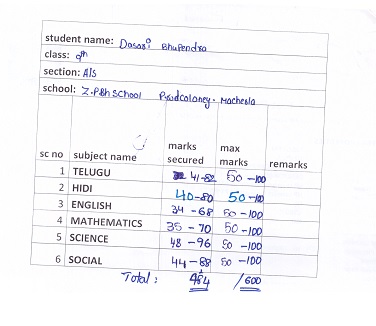 student name: Dasari Bhupendra
class: 9th
section: A/S
school: Z.P.B.h School Macherla
sc no subject name marks secured max marks remarks
1 TELUGU 41-82 50-100
2 HIDI 40-80 50-100
3 ENGLISH 34-68 50-100
4 MATHEMATICS 35-70 50-100
5 SCIENCE 48-96 50-100
6 SOCIAL 44-88 50-100
Total: 484 /600